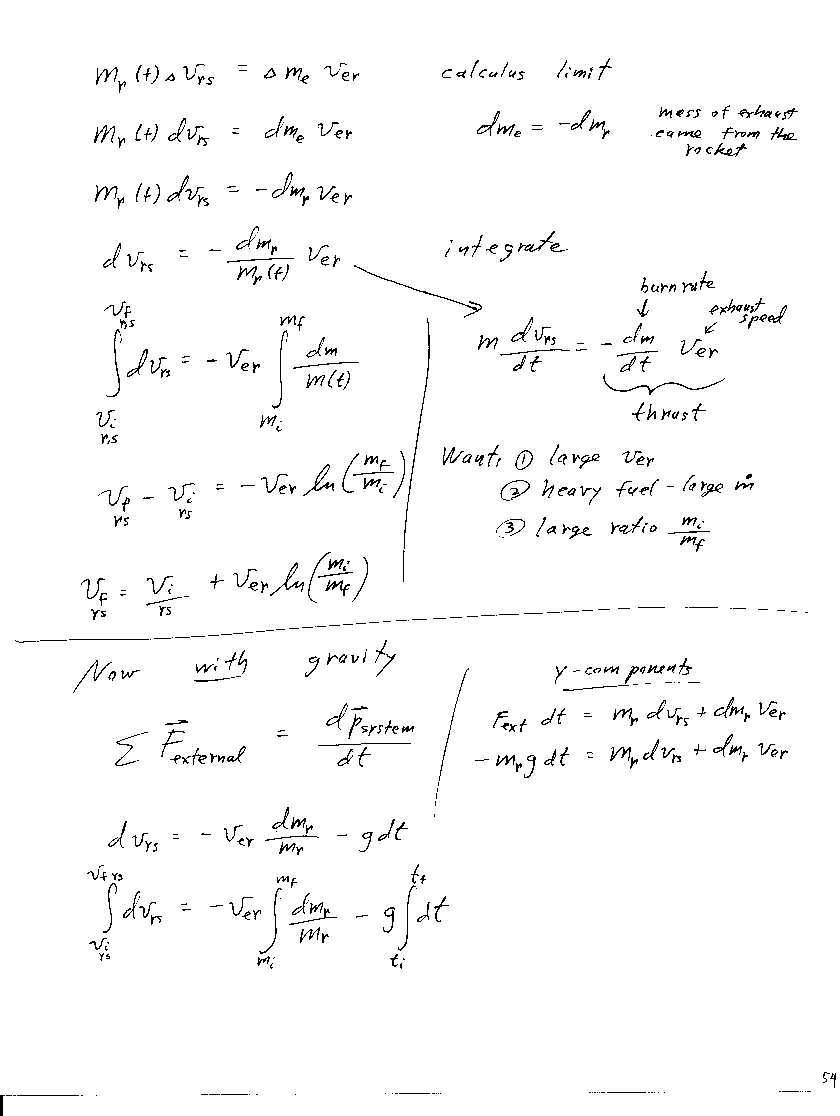 m_r(t) Δv_rs = Δm_e v_er calculus limit
m_r(t) dv_rs = dm_e v_er dm_e = -dm_r mass of exhaust came from the rocket
m_r(t) dv_rs = -dm_r v_er
dv_rs = - dm_r/m_r(t) v_er integrate
∫_{v_i rs}^{v_f rs} dv_rs = -v_er ∫_{m_i}^{m_f} dm/m(t)
v_f rs - v_i rs = -v_er ln(m_f/m_i)
v_f rs = v_i rs + v_er ln(m_i/m_f)
burn rate
exhaust speed
m dv_rs/dt = - dm/dt v_er
thrust
Want: ① large v_er
② heavy fuel - large ṁ
③ large ratio m_i/m_f
Now with gravity
∑ F⃗_external = dp⃗_system/dt
y-components
F_ext dt = m_r dv_rs + dm_r v_er
-m_r g dt = m_r dv_rs + dm_r v_er
dv_rs = -v_er dm_r/m_r - g dt
∫_{v_i rs}^{v_f rs} dv_rs = -v_er ∫_{m_i}^{m_f} dm_r/m_r - g ∫_{t_i}^{t_f} dt
54